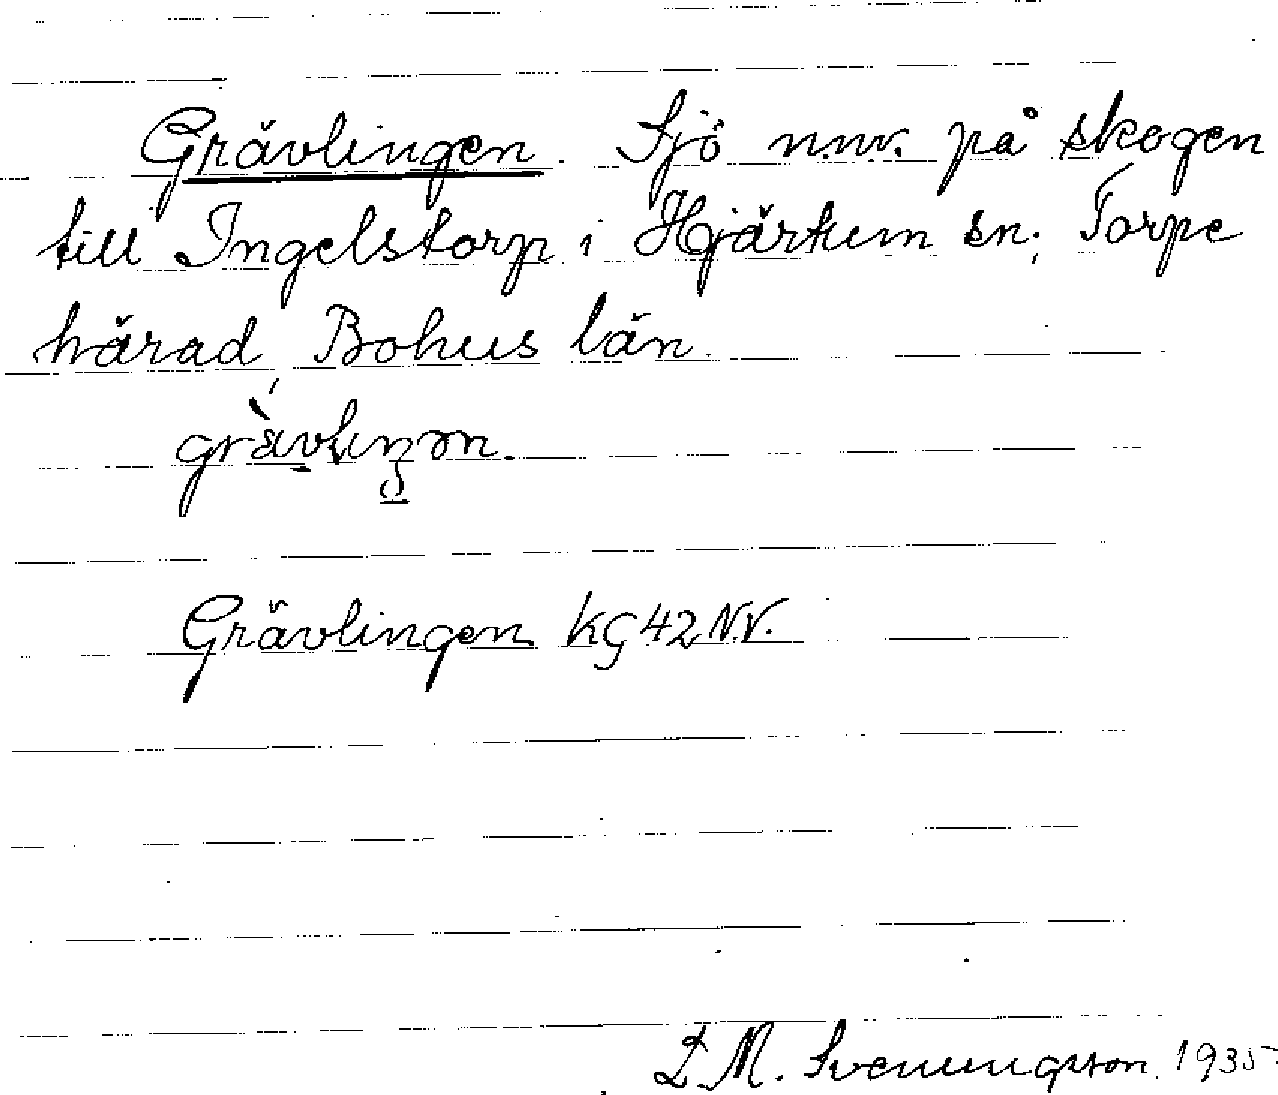 Grävlingen. Sjö n.nv. på skogen
till Ingelstorp i Hjärtum sn; Torpe
härad, Bohus län.
Grävlingen KG 42 NV.
L M. Svenungsson. 1935